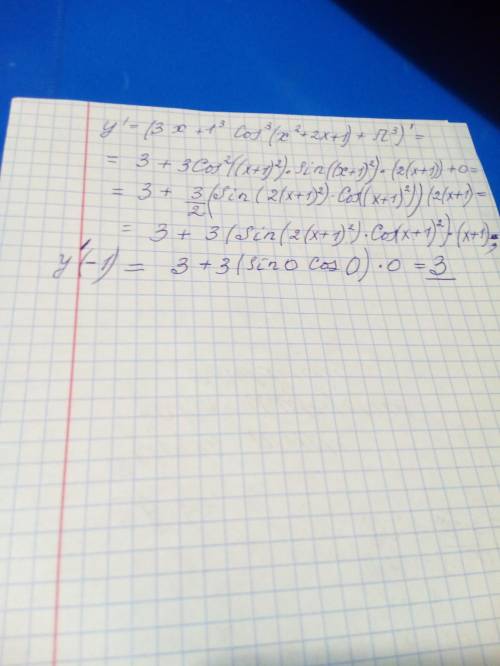 y' = (3x + 1³ cos³(x²+2x+1) + π³)' =
= 3 + 3cos²((x+1)²)·sin((x+1)²)·(2(x+1)) + 0 =
= 3 + 3/2 (sin(2(x+1)²)·cos((x+1)²))(2(x+1) =
= 3 + 3(sin(2(x+1)²)·cos(x+1)²)·(x+1) =,
y'(-1) = 3 + 3(sin0 cos0)·0 = 3